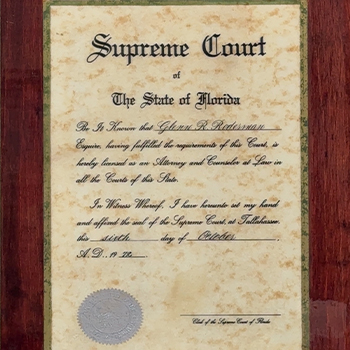 Supreme Court
of
The State of Florida
Be It Known that Glenn R. Roderman
Esquire, having fulfilled the requirements of this Court, is
hereby licensed as an Attorney and Counselor at Law in
all the Courts of this State.
In Witness Whereof, I have hereunto set my hand
and affixed the seal of the Supreme Court, at Tallahassee
this sixth day of October,
A. D., 19
Clerk of the Supreme Court of Florida